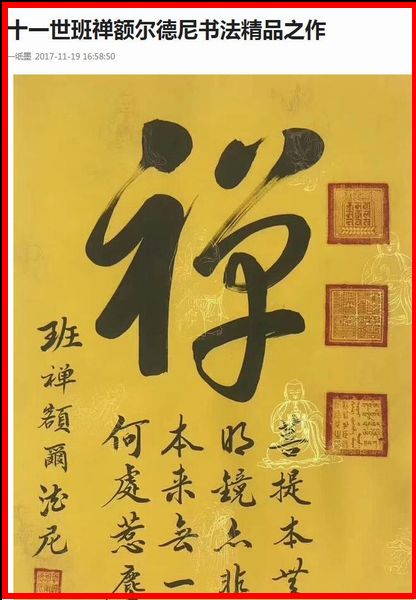 十一世班禅额尔德尼书法精品之作
一纸墨 2017-11-19 16:58:50
禅
菩提本無
明鏡亦非
本来無一
何處惹塵
班禅額爾德尼